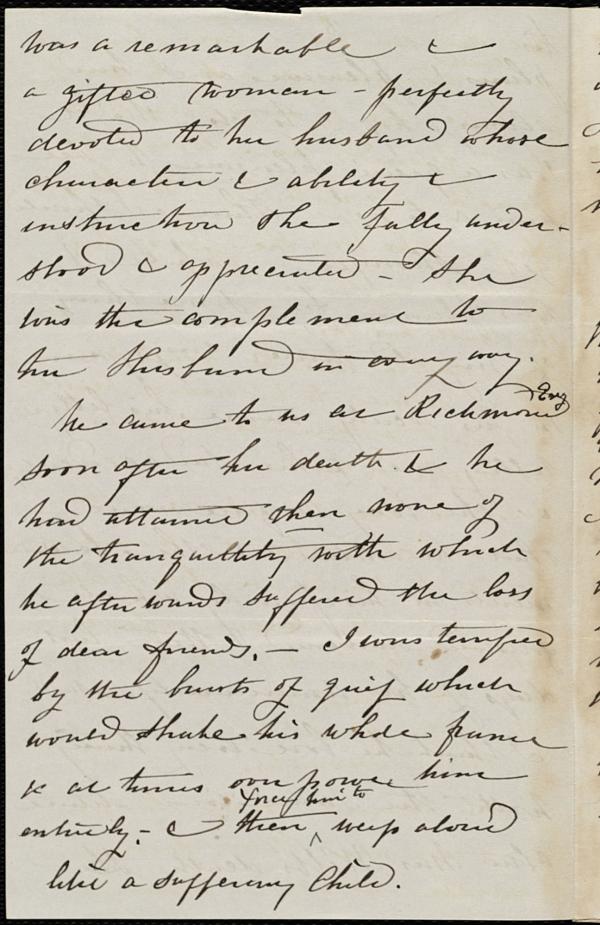 was a remarkable &
a gifted woman - perfectly
devoted to her husband whose
character & ability &
instruction she fully under-
stood & appreciated - She
was the complement to
her Husband in every way.
He came to us at Richmond Eng
soon after her death. & he
had attained then none of
the tranquillity with which
he afterwards suffered the loss
of dear friends. - I was terrified
by the bursts of grief which
would shake his whole frame
& at times overpower him
entirely - & then force him to weep aloud
like a suffering Child.